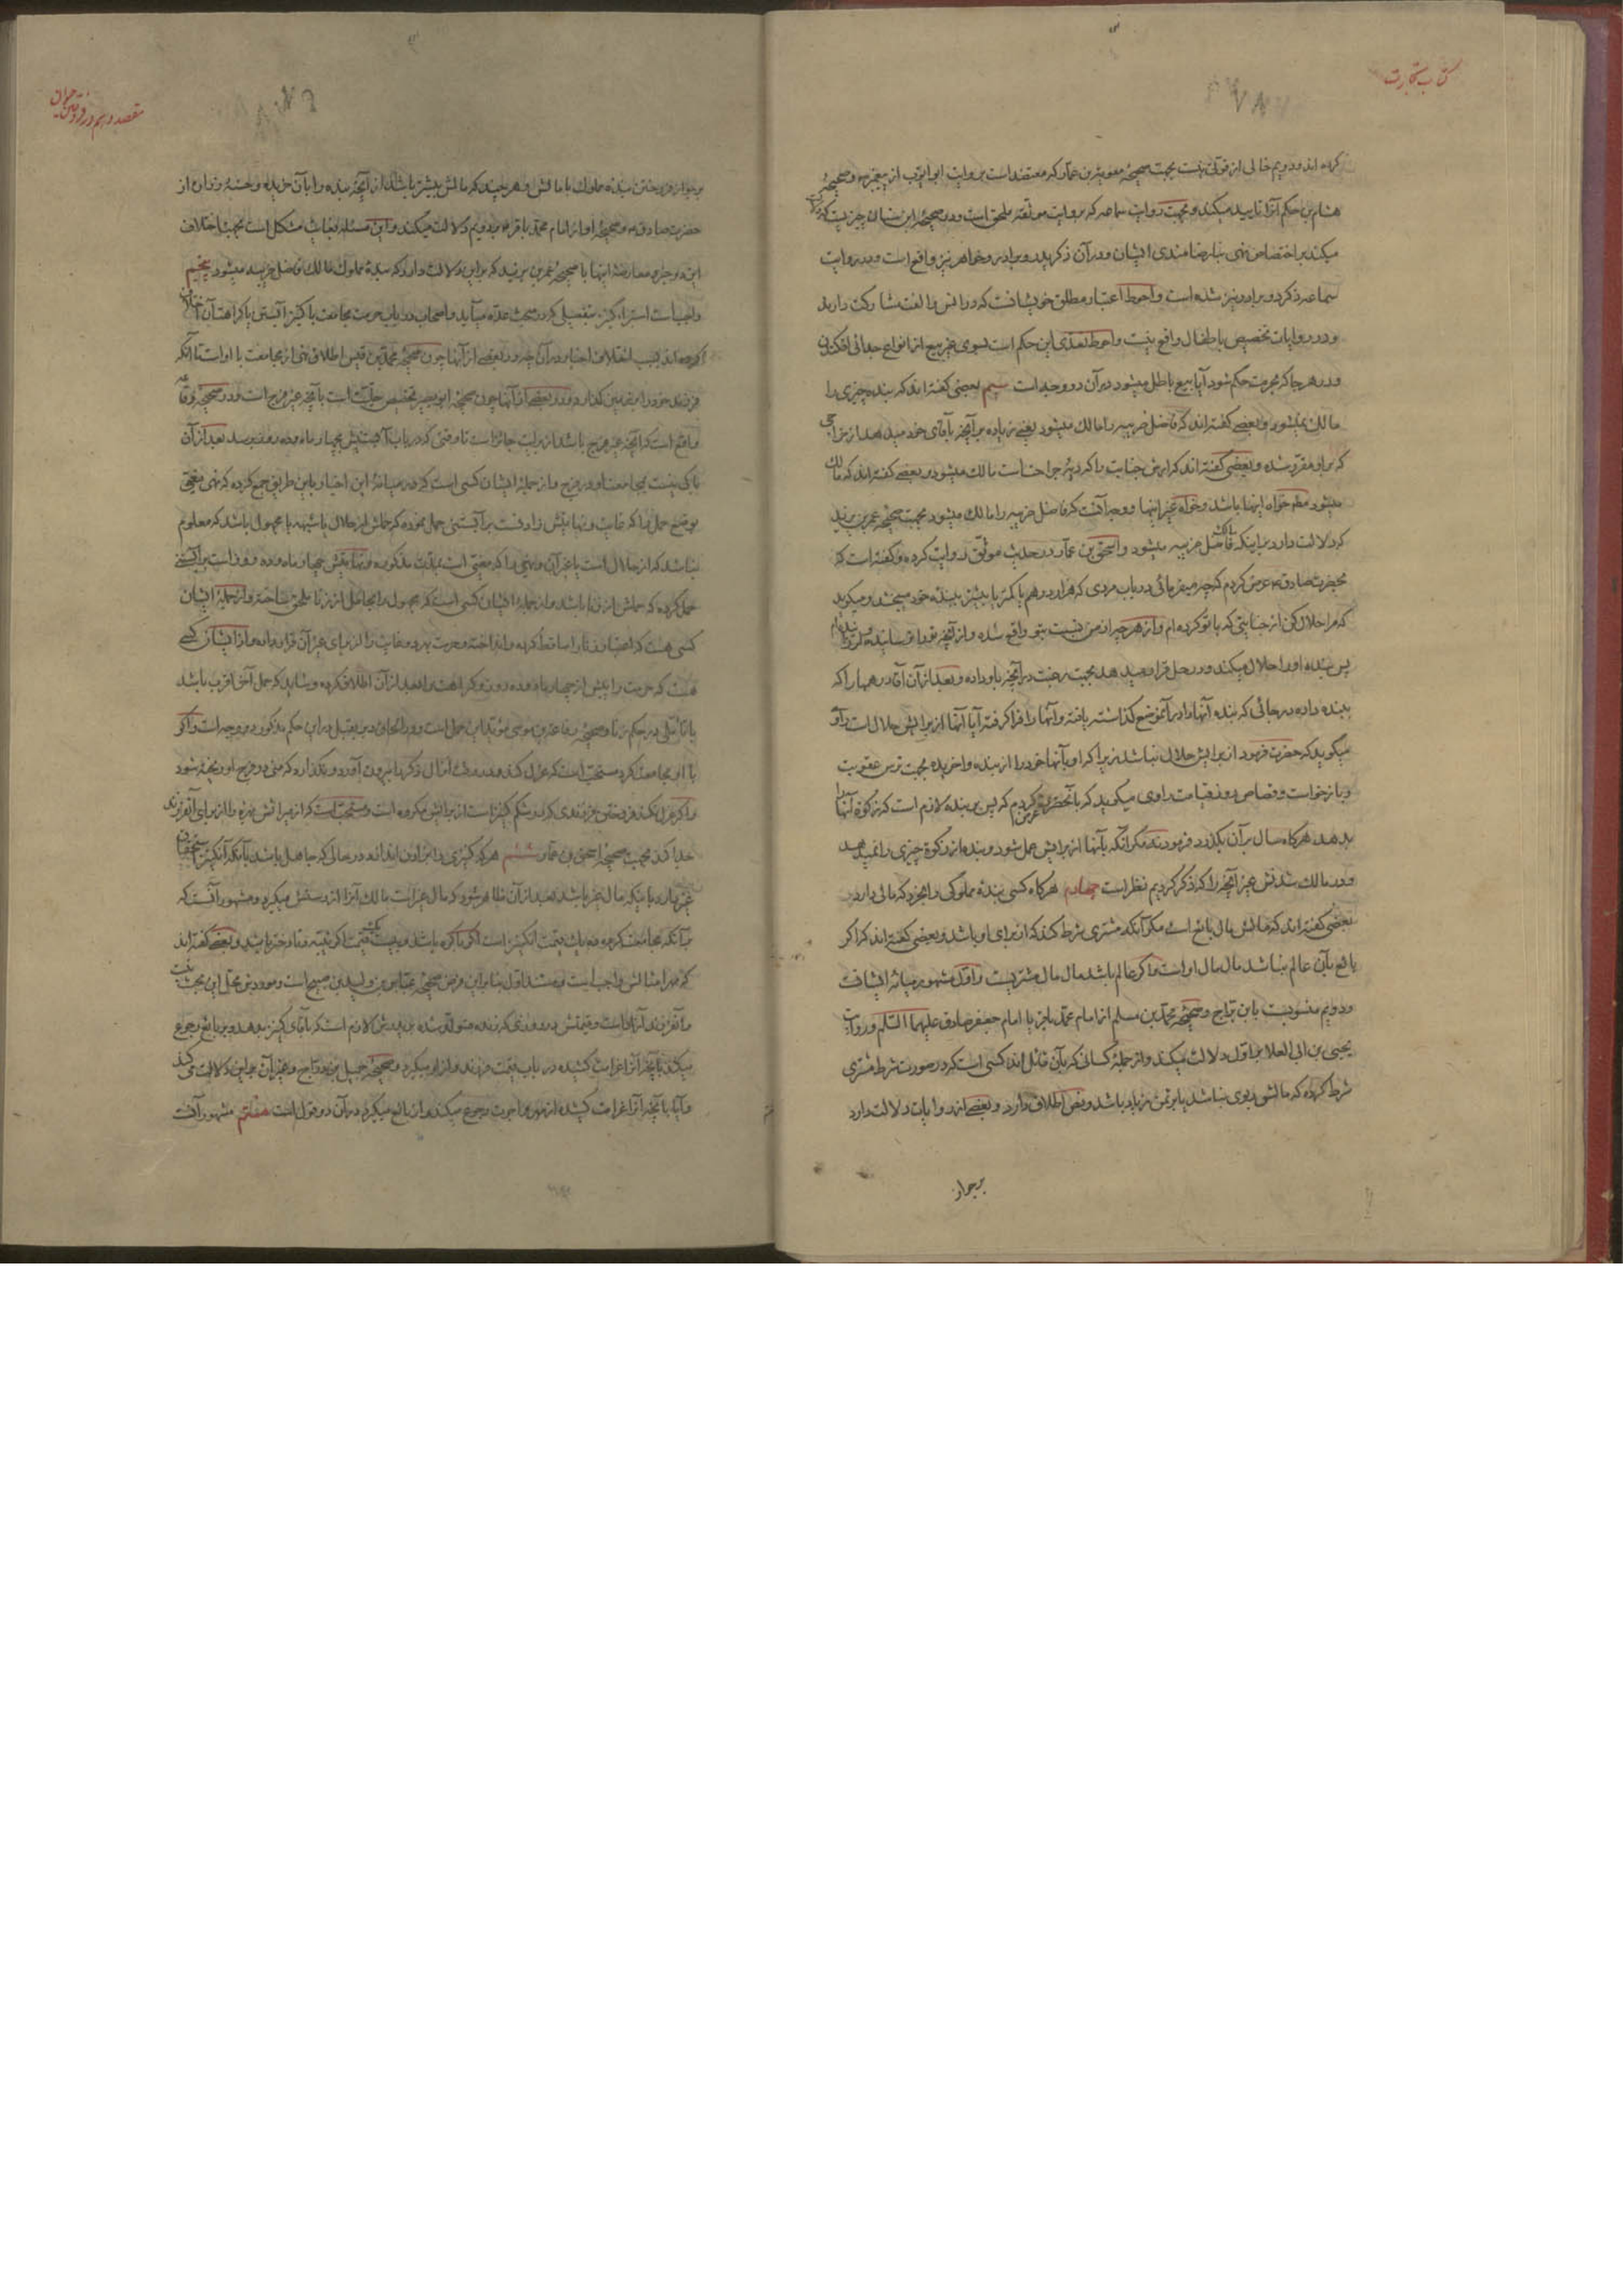 کتاب تجارت
کرده اند و دویم خالی از قوتی نیست بجهت صحیحهٔ معویة بن عمار که معتضد است بروایت ابی ایوب از پیغمبر ص و صحیحهٔ
هشام بن حکم آنرا تایید میکند و بجهت روایت سماعه که بروایت موثقه ملحق است و در صحیحهٔ ابن سنان چیزیست که دلالت
میکند بر اختصاص نهی بنا رضامندی ایشان و در آن ذکر پدر و برادر و خواهر نیز واقع است و در روایت
سماعه ذکر دو برادر نیز شده است و احوط اعتبار مطلق خویشانست که در انس و الفت مشارکت دارند
و در روایات تخصیص باطفال واقع نیست و احوط تعدّی این حکم است بسوی غیر بیع از انواع جدائی افکندن
و در هر جا که بحرمت حکم شود آیا بیع باطل میشود در آن دو وجه است سیم بعضی گفته اند که بنده چیزی را
مالک نمیشود و بعضی گفته اند که فاضل ضریبه را مالک میشود یعنی زیاده بر آنچه بآقای خود میدهد از خراجی
که بر او مقرّر شده و بعضی گفته اند که ارش جنایت را که دیهٔ جراحتست مالک میشود و بعضی گفته اند که مالک
میشود مطم خواه اینها باشد و خواه غیر اینها و وجه آنست که فاضل ضریبه را مالک میشود بجهت صحیحهٔ عمر بن یزید
که دلالت دارد بر اینکه مالک فاضل ضریبه میشود و اسحق بن عمار در حدیث موثّق روایت کرده و گفته است که
بحضرت صادق ع عرض کردم که چه میفرمائی در باب مردی که هزار درهم یا کمتر یا بیشتر ببندهٔ خود میبخشد و میگوید
که مرا حلال کن از جنایتی که با تو کرده ام و از هر چه از من نسبت بتو واقع شده و از آنچه ترا ترسانیده ام
پس بنده او را حلال میکند و در حل قرار میدهد بجهت رغبت در آنچه باو داده و بعد از آن آقا درهمها را که
ببنده داده در جائی که بنده آنها را در آنموضع گذاشته یافته و آنها را فرا گرفته آیا آنها از برایش حلال است راوی
میگوید که حضرت فرمود از برایش حلال نباشد زیرا که او بآنها خود را از بنده واخریده بجهت ترس عقوبت
و بازخواست و قصاص روز قیامت راوی میگوید که بآنحضرت عرض کردم که پس بر بنده لازم است که زکوة آنها را
بدهد هرگاه سال بر آن بگذرد فرمودند نه مگر آنکه بآنها از برایش عمل شود و بنده از زکوة چیزی را نمیدهد
و در مالک شدنش غیر آنچه را که ذکر کردیم نظر است چهارم هرگاه کسی بندهٔ مملوکی را بخرد که مالی دارد
بعضی گفته اند که مالش مال بایع است مگر آنکه مشتری شرط کند که از برای او باشد و بعضی گفته اند که اگر
بایع بآن عالم نباشد مال مال او است و اگر عالم باشد مال مال مشتریست و اوّل مشهور میانهٔ ایشانست
و دویم منسوبست بابن برّاج و صحیحهٔ محمّد بن مسلم از امام محمّد باقر یا امام جعفر صادق علیهما السّلم و روایت
یحیی بن ابی العلا بر اوّل دلالت میکند و از جملهٔ کسانی که بآن قائل اند کسی است که در صورت شرط مشتری
شرط کرده که مالش ربوی نباشد یا بر ثمن زیاد باشد و نص اطلاق دارد و بعضی از روایات دلالت دارد
بر جواز
مقصد دهم در فروختن حیوان
بر جواز فروختن بندهٔ مملوک با مالش و هر چند که مالش بیشتر باشد از آنچه بنده را بآن خریده و حسنهٔ زراره از
حضرت صادق ع و صحیحهٔ او از امام محمّد باقر ع بر دویم دلالت میکند و این مسئله بغایت مشکل است بجهت اختلاف
این دو خبر و معارضهٔ اینها با صحیحهٔ عمر بن یزید که بر این دلالت دارد که بندهٔ مملوک مالک فاضل ضریبه میشود پنجم
واجبست استبراء کنیز بتفصیلی که در مبحث عدّه میآید و اصحاب در باب حرمت مجامعت با کنیز آبستن یا کراهت آن اختلاف
کرده اند بسبب اختلاف اخبار در آن چه در بعضی از آنها چون صحیحهٔ محمّد بن قیس اطلاق نهی از مجامعت با او است تا آنکه
فرزند خود را بر زمین گذارد و در بعضی از آنها چون صحیحهٔ ابو بصیر تخصیص حلّیت است بآنچه غیر فرج است و در صحیحهٔ رفاعه
واقع است که آنچه غیر فرج باشد از برایت جائز است تا وقتی که در باب آبستنیش بچهار ماه و ده روز برسد بعد از آن
باکی نیست بمجامعت او در فرج و از جملهٔ ایشان کسی است که در میانهٔ این اخبار باین طریق جمع کرده که نهی مغیّی
بوضع حمل را که غایت و نهایتش زادنست بر آبستنی حمل نموده که حملش از حلال یا شبهه یا مجهول باشد که معلوم
نباشد که از حلال است یا غیر آن و نهیی را که مغیّی است بمدّت مذکوره و نهایتش چهار ماه و ده روز است بر آبستنی
حمل کرده که حملش از زنا باشد و از جملهٔ ایشان کسی است که مجهول را بحامل از زنا ملحق ساخته و از جملهٔ ایشان
کسی هست که اعتبار زنا را ساقط کرده و انداخته و حرمت بهر دو غایت را از برای غیر آن قرار داده و از ایشان کسی
هست که حرمت را پیش از چهار ماه و ده روز و کراهت را بعد از آن اطلاق کرده و شاید که حمل آخر اقرب باشد
با تامّلی در حکم زنا و صحیحهٔ رفاعة بن موسی مؤیّد این حمل است و در الحاق دبر بقبل در این حکم مذکور دو وجه است و اگر
با او مجامعت کرد مستحبّ است که عزل کند و در وقت انزال ذکر را بیرون آورد و نگذارد که منی در فرج او ریخته شود
و اگر عزل نکند فروختن فرزندی که در شکم کنیز است از برایش مکروه است و مستحبّ است که از میراثش بهره را از برای آنفرزند
جدا کند بجهت صحیحهٔ اسحق بن عمار ششم هر که کنیزی را بخرد و بر او درآید در حالی که جاهل باشد بآنکه آنکنیز استحقاق
غیر دارد باینکه مال غیر باشد بعد از آن ظاهر شود که مال غیر است مالک آنرا از دستش میگیرد و مشهور آنست که
بر آنکه مجامعت کرده ده یک قیمت آنکنیز است اگر باکره باشد و بیست یک قیمت اگر ثیّبه و ناباکره باشد و بعضی گفته اند
که مهر امثالش واجب است و مستند اوّل بنا بر این فرض صحیحهٔ عبّاس بن ولید بن صبیح است و موردش محل این بحث نیست
و آنفرزند آزاد است و قیمتش در روزی که زنده متولّد شده بر پدرش لازم است که بآقای کنیز بدهد و بر بایع رجوع
میکند بآنچه آنرا غرامت کشیده در باب قیمت فرزند و از او میگیرد و صحیحهٔ جمیل بن درّاج و غیر آن بر این دلالت میکند
و آیا بآنچه آنرا غرامت کشیده از مهر و اجرت رجوع میکند و از بایع میگیرد در آن دو قول است هفتم مشهور آنست